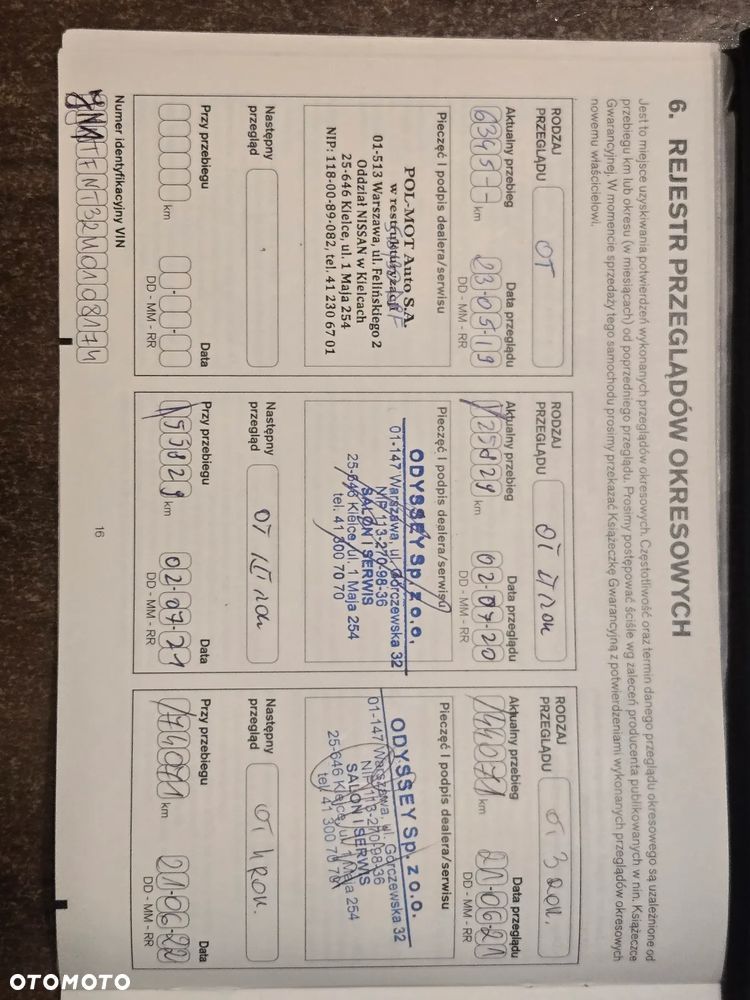 6. REJESTR PRZEGLĄDÓW OKRESOWYCH
Jest to miejsce uzyskiwania potwierdzeń wykonanych przeglądów okresowych. Częstotliwość oraz termin danego przeglądu okresowego są uzależnione od
przebiegu km lub okresu (w miesiącach) od poprzedniego przeglądu. Prosimy postępować ściśle wg zaleceń producenta publikowanych w nin. Książeczce
Gwarancyjnej. W momencie sprzedaży tego samochodu prosimy przekazać Książeczkę Gwarancyjną z potwierdzeniami wykonanych przeglądów okresowych
nowemu właścicielowi.
RODZAJ
PRZEGLĄDU OT
Aktualny przebieg
6345-- km
Data przeglądu
23-05-19
DD - MM - RR
Pieczęć i podpis dealera/serwisu
POL-MOT Auto S.A.
w restrukturyzacji
01-513 Warszawa, ul. Felińskiego 2
Oddział NISSAN w Kielcach
25-646 Kielce, ul. 1 Maja 254
NIP: 118-00-89-082, tel. 41 230 67 01
Następny
przegląd
Przy przebiegu
km
Data
DD - MM - RR
Numer identyfikacyjny VIN
RODZAJ
PRZEGLĄDU OT
Aktualny przebieg
125829 km
Data przeglądu
02-07-20
DD - MM - RR
Pieczęć i podpis dealera/serwisu
ODYSSEY Sp. z o.o.
01-147 Warszawa, ul. Górczewska 32
NIP 113-270-98-36
SALON I SERWIS
25-646 Kielce, ul. 1 Maja 254
tel. 41 300 70 70
Następny
przegląd OT III rok
Przy przebiegu
155829 km
Data
02-07-21
DD - MM - RR
16
RODZAJ
PRZEGLĄDU OT 3 rok.
Aktualny przebieg
144071 km
Data przeglądu
21-06-21
DD - MM - RR
Pieczęć i podpis dealera/serwisu
ODYSSEY Sp. z o.o.
01-147 Warszawa, ul. Górczewska 32
NIP 113-270-98-36
SALON I SERWIS
25-646 Kielce, ul. 1 Maja 254
tel. 41 300 70 70
Następny
przegląd OT 4 rok.
Przy przebiegu
174071 km
Data
21-06-22
DD - MM - RR
OTOMOTO